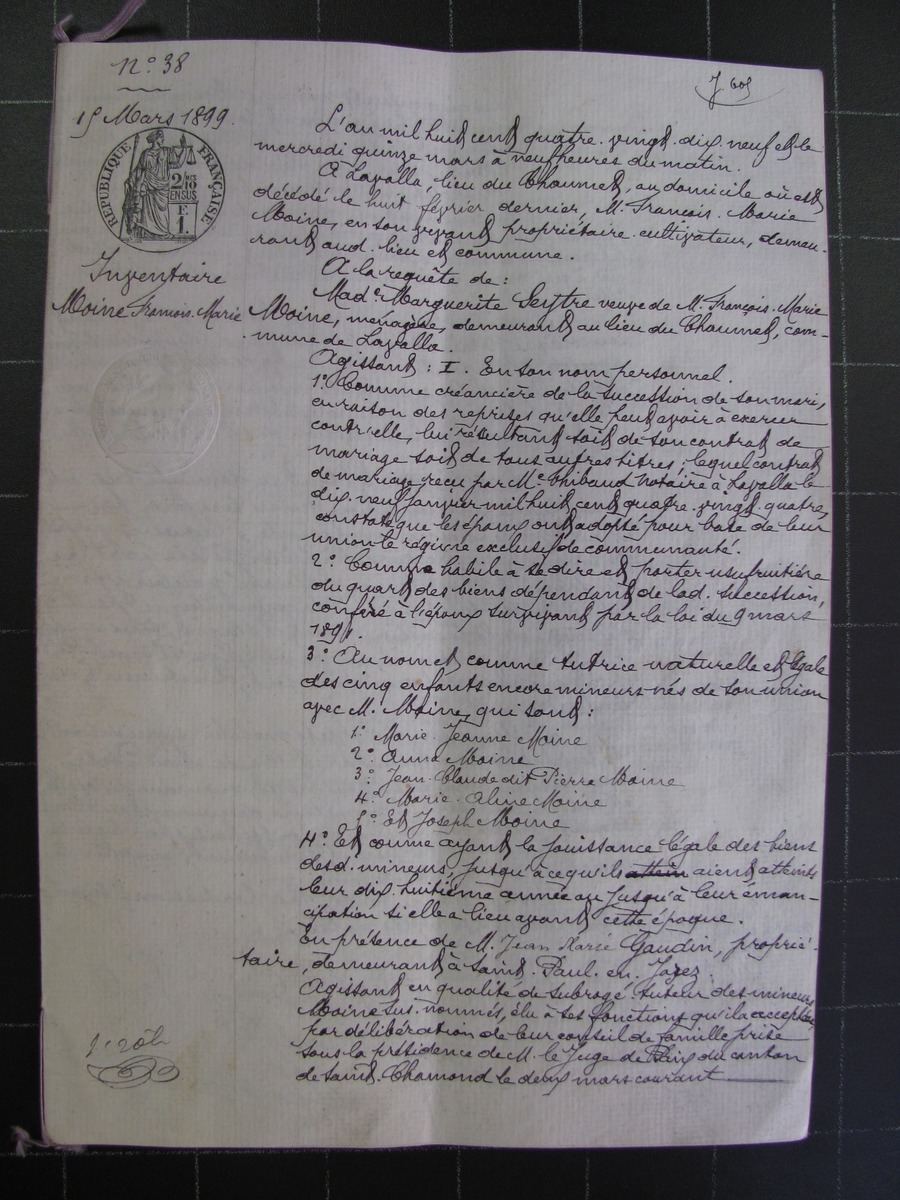 N° 38
15 Mars 1899.
RÉPUBLIQUE FRANÇAISE
2/10 EN SUS
F.
1.
Inventaire
Moine François-Marie
L'an mil huit cent quatre-vingt-dix-neuf et le
mercredi quinze mars à neuf heures du matin.
A Lavalla, lieu du Chaumet, au domicile où est
décédé le huit février dernier, M. François-Marie
Moine, en son vivant propriétaire-cultivateur, demeu-
rant aud. lieu et commune.
A la requête de :
Made Marguerite Seytre veuve de M. François-Marie
Moine, ménagère, demeurant au lieu du Chaumet, com-
mune de Lavalla.
Agissant : I. En son nom personnel.
1° Comme créancière de la succession de son mari,
en raison des reprises qu'elle peut avoir à exercer
contr'elle, lui résultant soit de son contrat de
mariage soit de tous autres titres ; lequel contrat
de mariage reçu par Me Thibaud notaire à Lavalla le
dix-neuf janvier mil huit cent quatre-vingt-quatre,
constate que les époux ont adopté pour base de leur
union le régime exclusif de communauté.
2° Comme habile à se dire et porter usufruitière
du quart des biens dépendant de lad. succession,
conféré à l'époux survivant par la loi du 9 mars
1891.
3° Au nom et comme tutrice naturelle et légale
des cinq enfants encore mineurs nés de son union
avec M. Moine, qui sont :
1° Marie-Jeanne Moine
2° Anna Moine
3° Jean-Claude dit Pierre Moine
4° Marie-Aline Moine
5° Et Joseph Moine
4° Et comme ayant la jouissance légale des biens
desd. mineurs, jusqu'à ce qu'ils attein aient atteints
leur dix-huitième année ou jusqu'à leur éman-
cipation si elle a lieu avant cette époque.
En présence de M. Jean Marie Gaudin, proprié-
taire, demeurant à Saint-Paul-en-Jarez.
Agissant en qualité de subrogé-tuteur des mineurs
Moine sus-nommés, élu à ses fonctions qu'il a acceptées
par délibération de leur conseil de famille prise
sous la présidence de M. le Juge de Paix du canton
de Saint-Chamond le deux mars courant